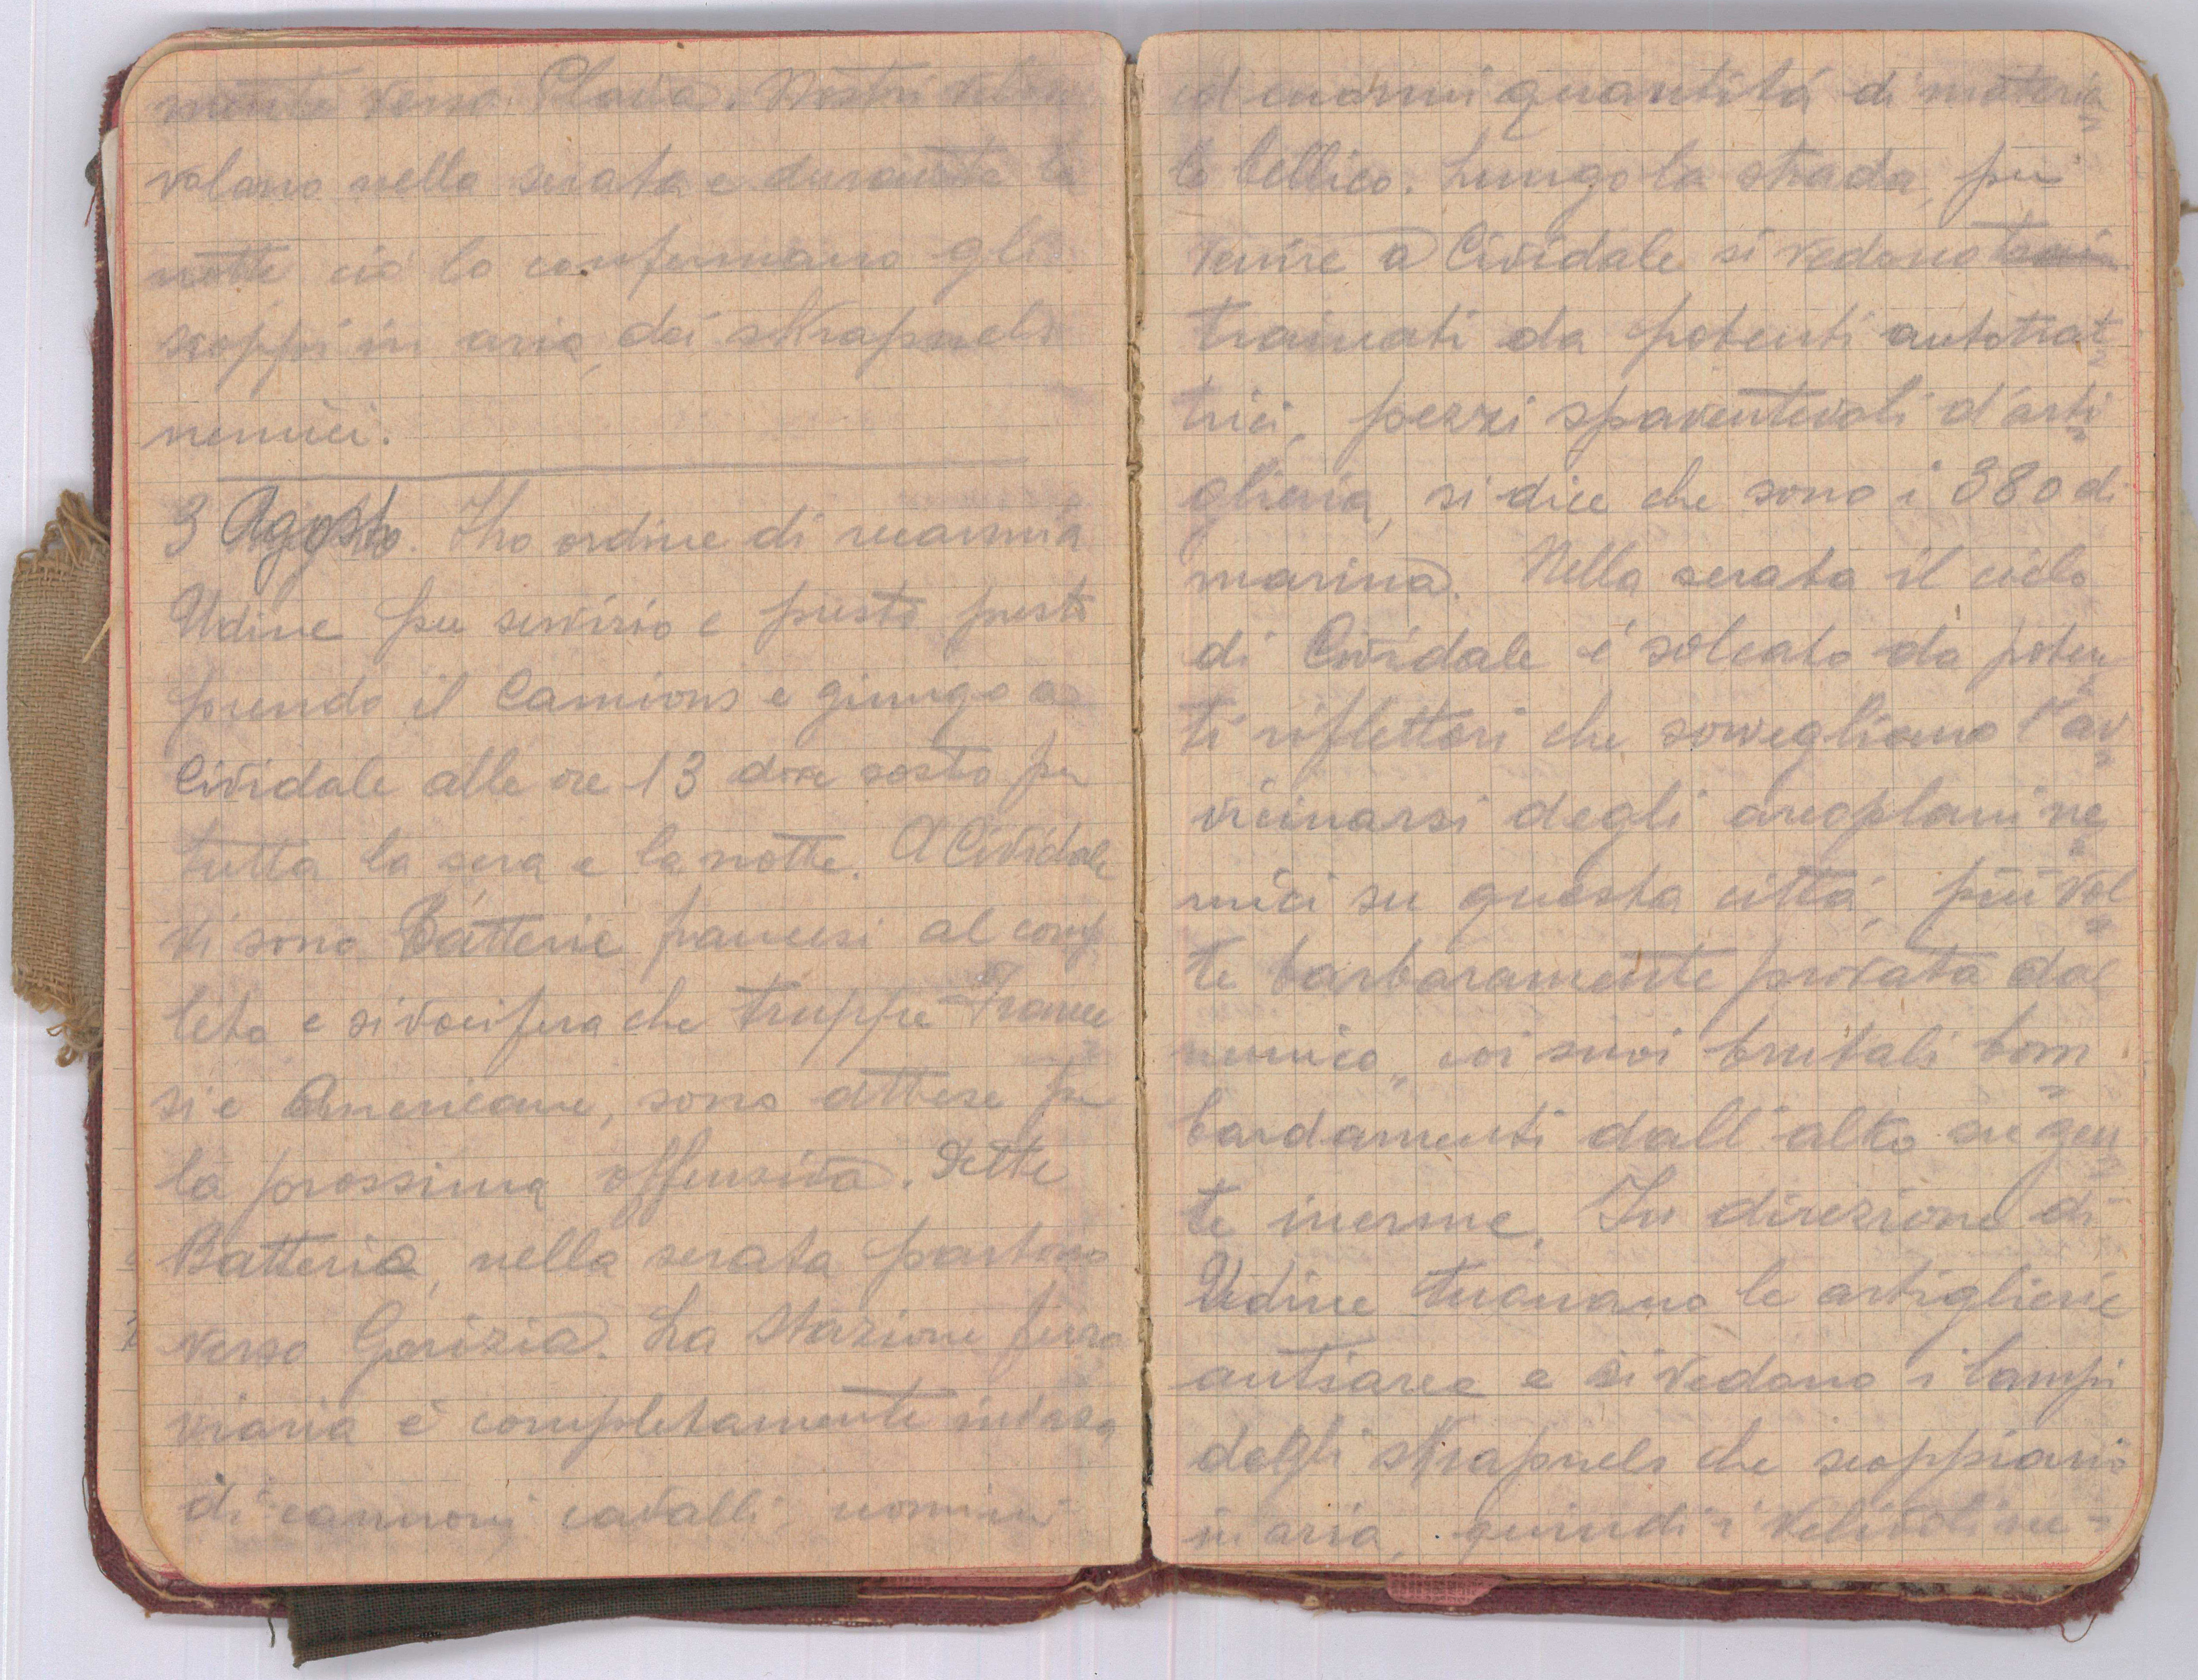 mente verso Plava. Nostri veliv
volano nella serata e durante la
notte ciò lo confermano gli
scoppi in aria, dei sKrapnels
nemici.
3 Agosto. Ho ordine di recarmi a
Udine per servizio e presto presto
prendo il Camions e giungo a
Cividale alle ore 13 dove sosto per
tutta la sera e la notte. A Cividale
vi sono Batterie francesi al comp
leto e si vocifera che truppe France
si e Americane, sono attese per
la prossima offensiva. Dette
Batterie, nella serata partono
verso Gorizia. La Stazione ferro
viaria è completamente invasa
di cannoni cavalli, uomini
ed enormi quantità di materia
le bellico. Lungo la strada, per
venire a Cividale si vedono
trainati da potenti autotrat
trici, pezzi spaventevoli d'arti
glieria, si dice che sono i 380 di
marina. Nella serata il cielo
di Cividale è solcato da poten
ti riflettori che sorvegliano l'av
vicinarsi degli areoplani ne
mici su questa città, più vol
te barbaramente provata dal
nemico, coi suoi brutali bom
bardamenti dall'alto su gen
te inerme. In direzione di
Udine tuonano le artiglierie
antiaree e si vedono i lampi
degli sKrapnels che scoppiano
in aria, quindi i velivoli ne-